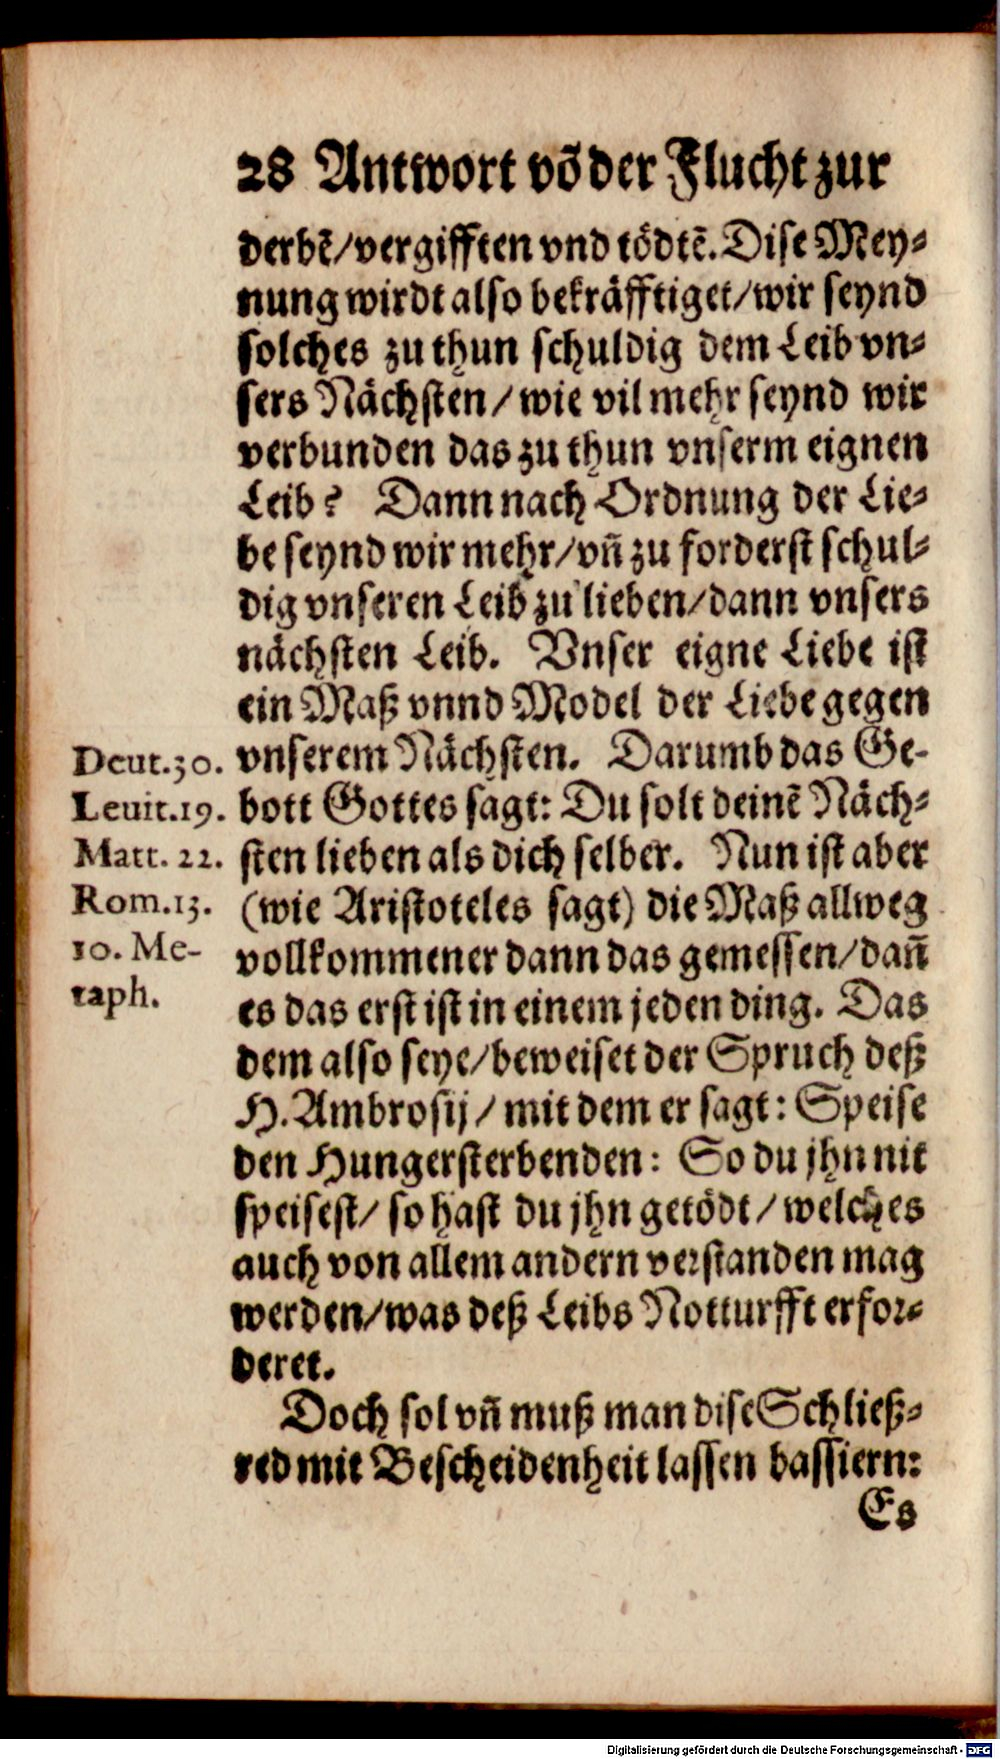 28 Antwort võ der Flucht zur
derbẽ/vergifften vnd tödtẽ. Dise Mey-
nung wirdt also bekräfftiget/wir seynd
solches zu thun schuldig dem Leib vn-
sers Nächsten/wie vil mehr seynd wir
verbunden das zu thun vnserm eignen
Leib? Dann nach Ordnung der Lie-
be seynd wir mehr/vñ zu forderst schul-
dig vnseren Leib zu lieben/dann vnsers
nächsten Leib. Vnser eigne Liebe ist
ein Maß vnnd Model der Liebe gegen
vnserem Nächsten. Darumb das Ge-
bott Gottes sagt: Du solt deinẽ Näch-
sten lieben als dich selber. Nun ist aber
(wie Aristoteles sagt) die Maß allweg
vollkommener dann das gemessen/dañ
es das erst ist in einem jeden ding. Das
dem also seye/beweiset der Spruch deß
H. Ambrosij/mit dem er sagt: Speise
den Hungersterbenden: So du jhn nit
speisest/so hast du jhn getödt/welches
auch von allem andern verstanden mag
werden/was deß Leibs Notturfft erfor-
deret.
Doch sol vñ muß man dise Schließ-
red mit Bescheidenheit lassen bassiern:
Es
Deut.30.
Leuit.19.
Matt. 22.
Rom.13.
10. Me-
taph.
Digitalisierung gefördert durch die Deutsche Forschungsgemeinschaft - DFG